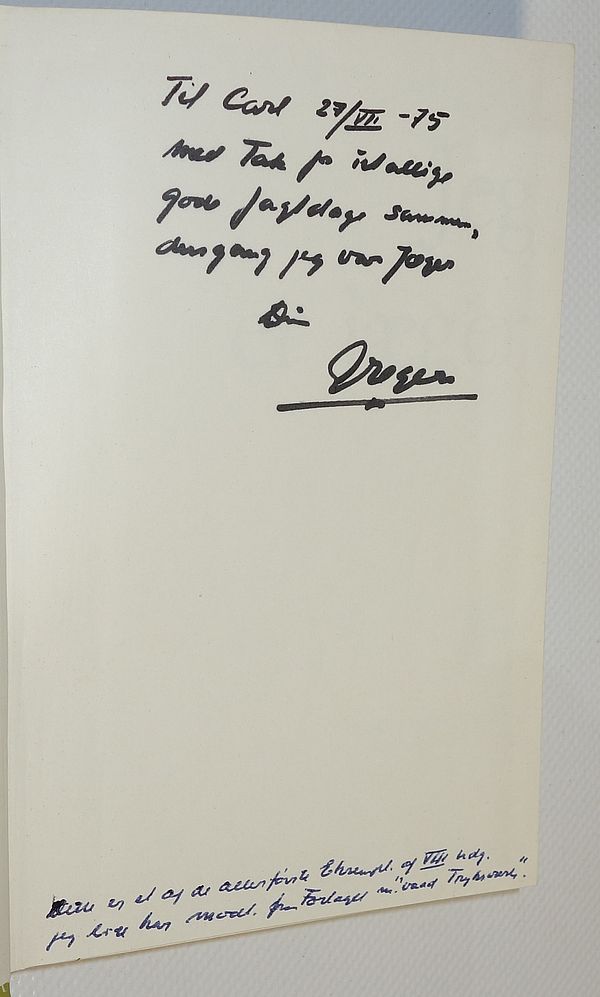 Til Carl 27/VII -75
med Tak for utallige
gode Jagtdage sammen,
dengang jeg var Jæger
Din
Dette er et af de allerførste Eksempl. af VIII Udg.
jeg lige har modt. fra Forlaget m. "vaad Tryksværte".